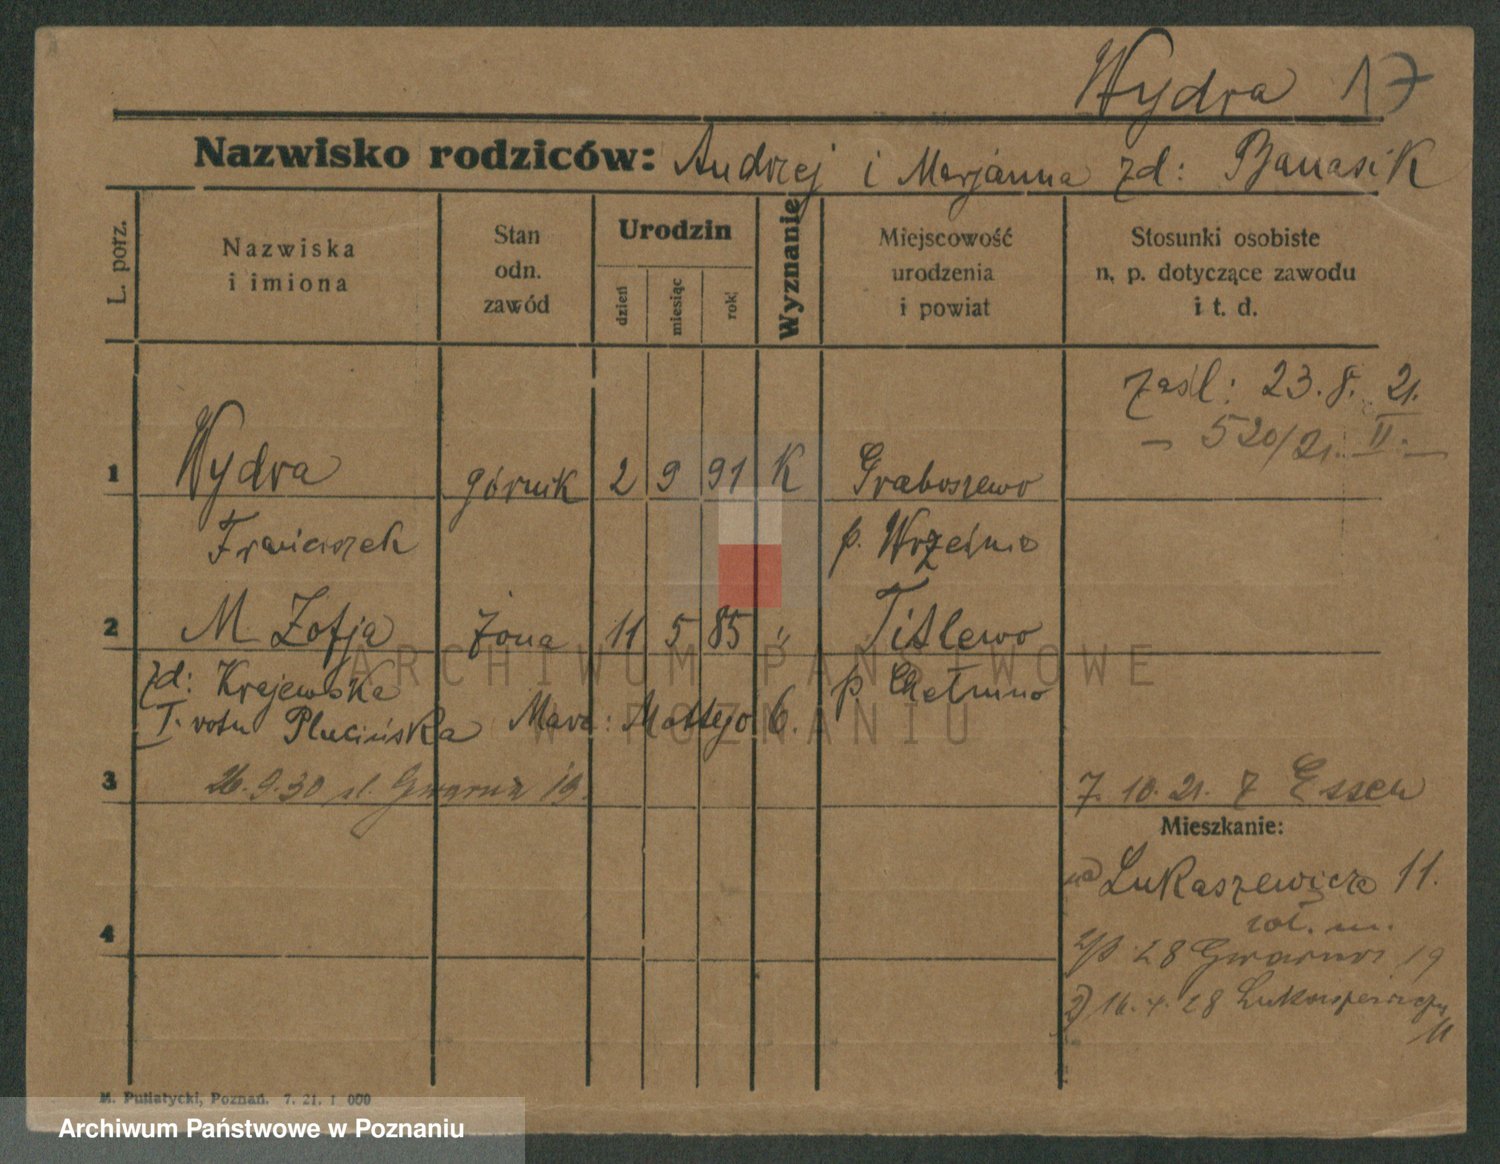 Wydra 17
Nazwisko rodziców: Andrzej i Marjanna zd: Banasik
L. porz.
Nazwiska
i imiona
Stan
odn.
zawód
Urodzin
dzień
miesiąc
rok
Wyznanie
Miejscowość
urodzenia
i powiat
Stosunki osobiste
n. p. dotyczące zawodu
i t. d.
zaśl: 23. 8. 21.
— 520/21. II. —
1 Wydra górnik 2 9 91 K Graboszewo
Franciszek p. Września
2 M Zofja żona 11 5 85 "
zd: Krajewska p. Chełmno
I. votu Plucińska Matejo 6.
3 26.9.30 ul. Gwarna 19.
7. 10. 21. z Essen
Mieszkanie:
Łukaszewicza 11.
4
28 Gwarna 19
2) 16. 4. 28 Łukaszewicza
11
M. Putiatycki, Poznań. 7. 21. 1 000
ARCHIWUM PAŃSTWOWE
W POZNANIU
Archiwum Państwowe w Poznaniu